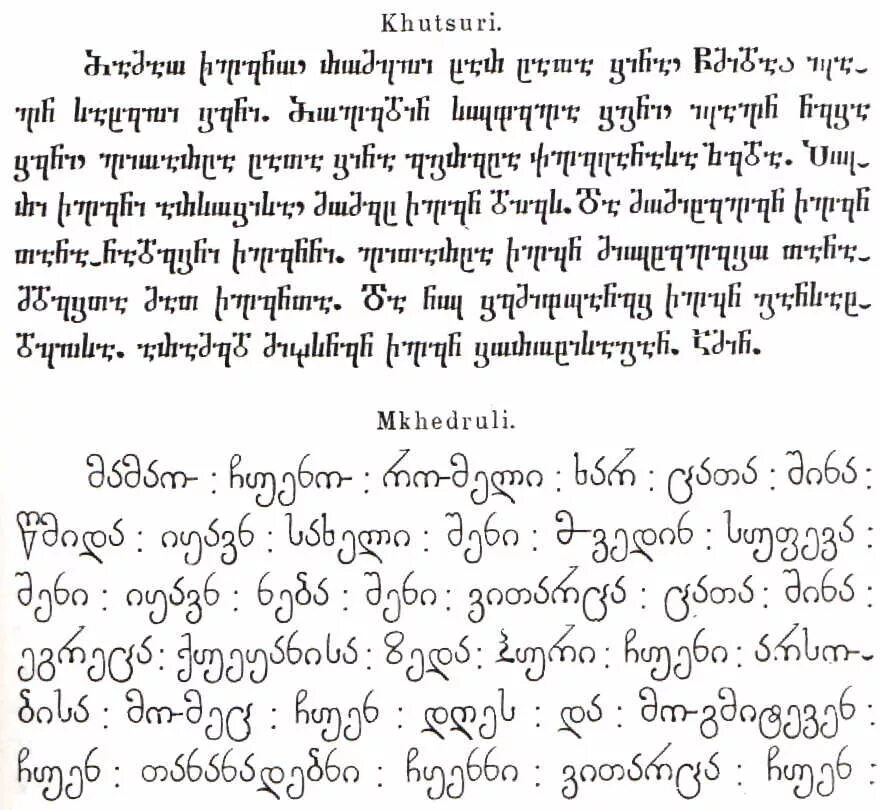 Khutsuri.
ⴋⴀⴋⴀⴍ ⴙⴍⴣⴄⴌⴍ, ⴐⴍⴋⴄⴊⴈ ⴞⴀⴐ ⴚⴀⴇⴀ ⴘⴈⴌⴀ, Ⴜⴋⴈⴃⴀ ⴈⴗⴀ-
ⴅⴌ ⴑⴀⴞⴄⴊⴈ ⴘⴄⴌⴈ. ⴋⴍⴅⴄⴃⴈⴌ ⴑⴍⴣⴔⴄⴅⴀ ⴘⴄⴌⴈ, ⴈⴗⴀⴅⴌ ⴌⴄⴁⴀ
ⴘⴄⴌⴈ, ⴅⴈⴇⴀⴐⴚⴀ ⴚⴀⴇⴀ ⴘⴈⴌⴀ ⴄⴂⴐⴄⴚⴀ ⴆⴄⴃⴀ. Ⴎⴍⴣ-
ⴐⴈ ⴙⴍⴣⴄⴌⴈ ⴋⴍⴋⴄⴚ ⴙⴍⴣⴄⴌ ⴃⴖⴄⴑ. Ⴃⴀ ⴙⴍⴣⴄⴌ
ⴇⴀⴌⴀ-ⴌⴀⴃⴄⴁⴌⴈ ⴙⴍⴣⴄⴌⴌⴈ. ⴅⴈⴇⴀⴐⴚⴀ ⴙⴍⴣⴄⴌ ⴇⴀⴌⴀ-
ⴋⴃⴄⴁⴇⴀ ⴋⴀⴇ ⴙⴍⴣⴄⴌⴇⴀ. Ⴃⴀ ⴌⴍⴣ ⴙⴍⴣⴄⴌ
ⴀⴐⴀⴋⴄⴃ ⴙⴍⴣⴄⴌ Ⴀⴋⴄⴌ.
Mkhedruli.
მამაო : ჩუენო : რომელი : ხარ : ცათა : შინა :
წმიდა : იყავნ : სახელი : შენი : მოვედინ : სუფევა :
შენი : იყავნ : ნება : შენი : ვითარცა : ცათა : შინა :
ეგრეცა : ქუეყანისა : ზედა : პური : ჩუენი : არსო-
ბისა : მომეც : ჩუენ : დღეს : და : მოგმიტევენ :
ჩუენ : თანანადებნი : ჩუენნი : ვითარცა : ჩუენ :